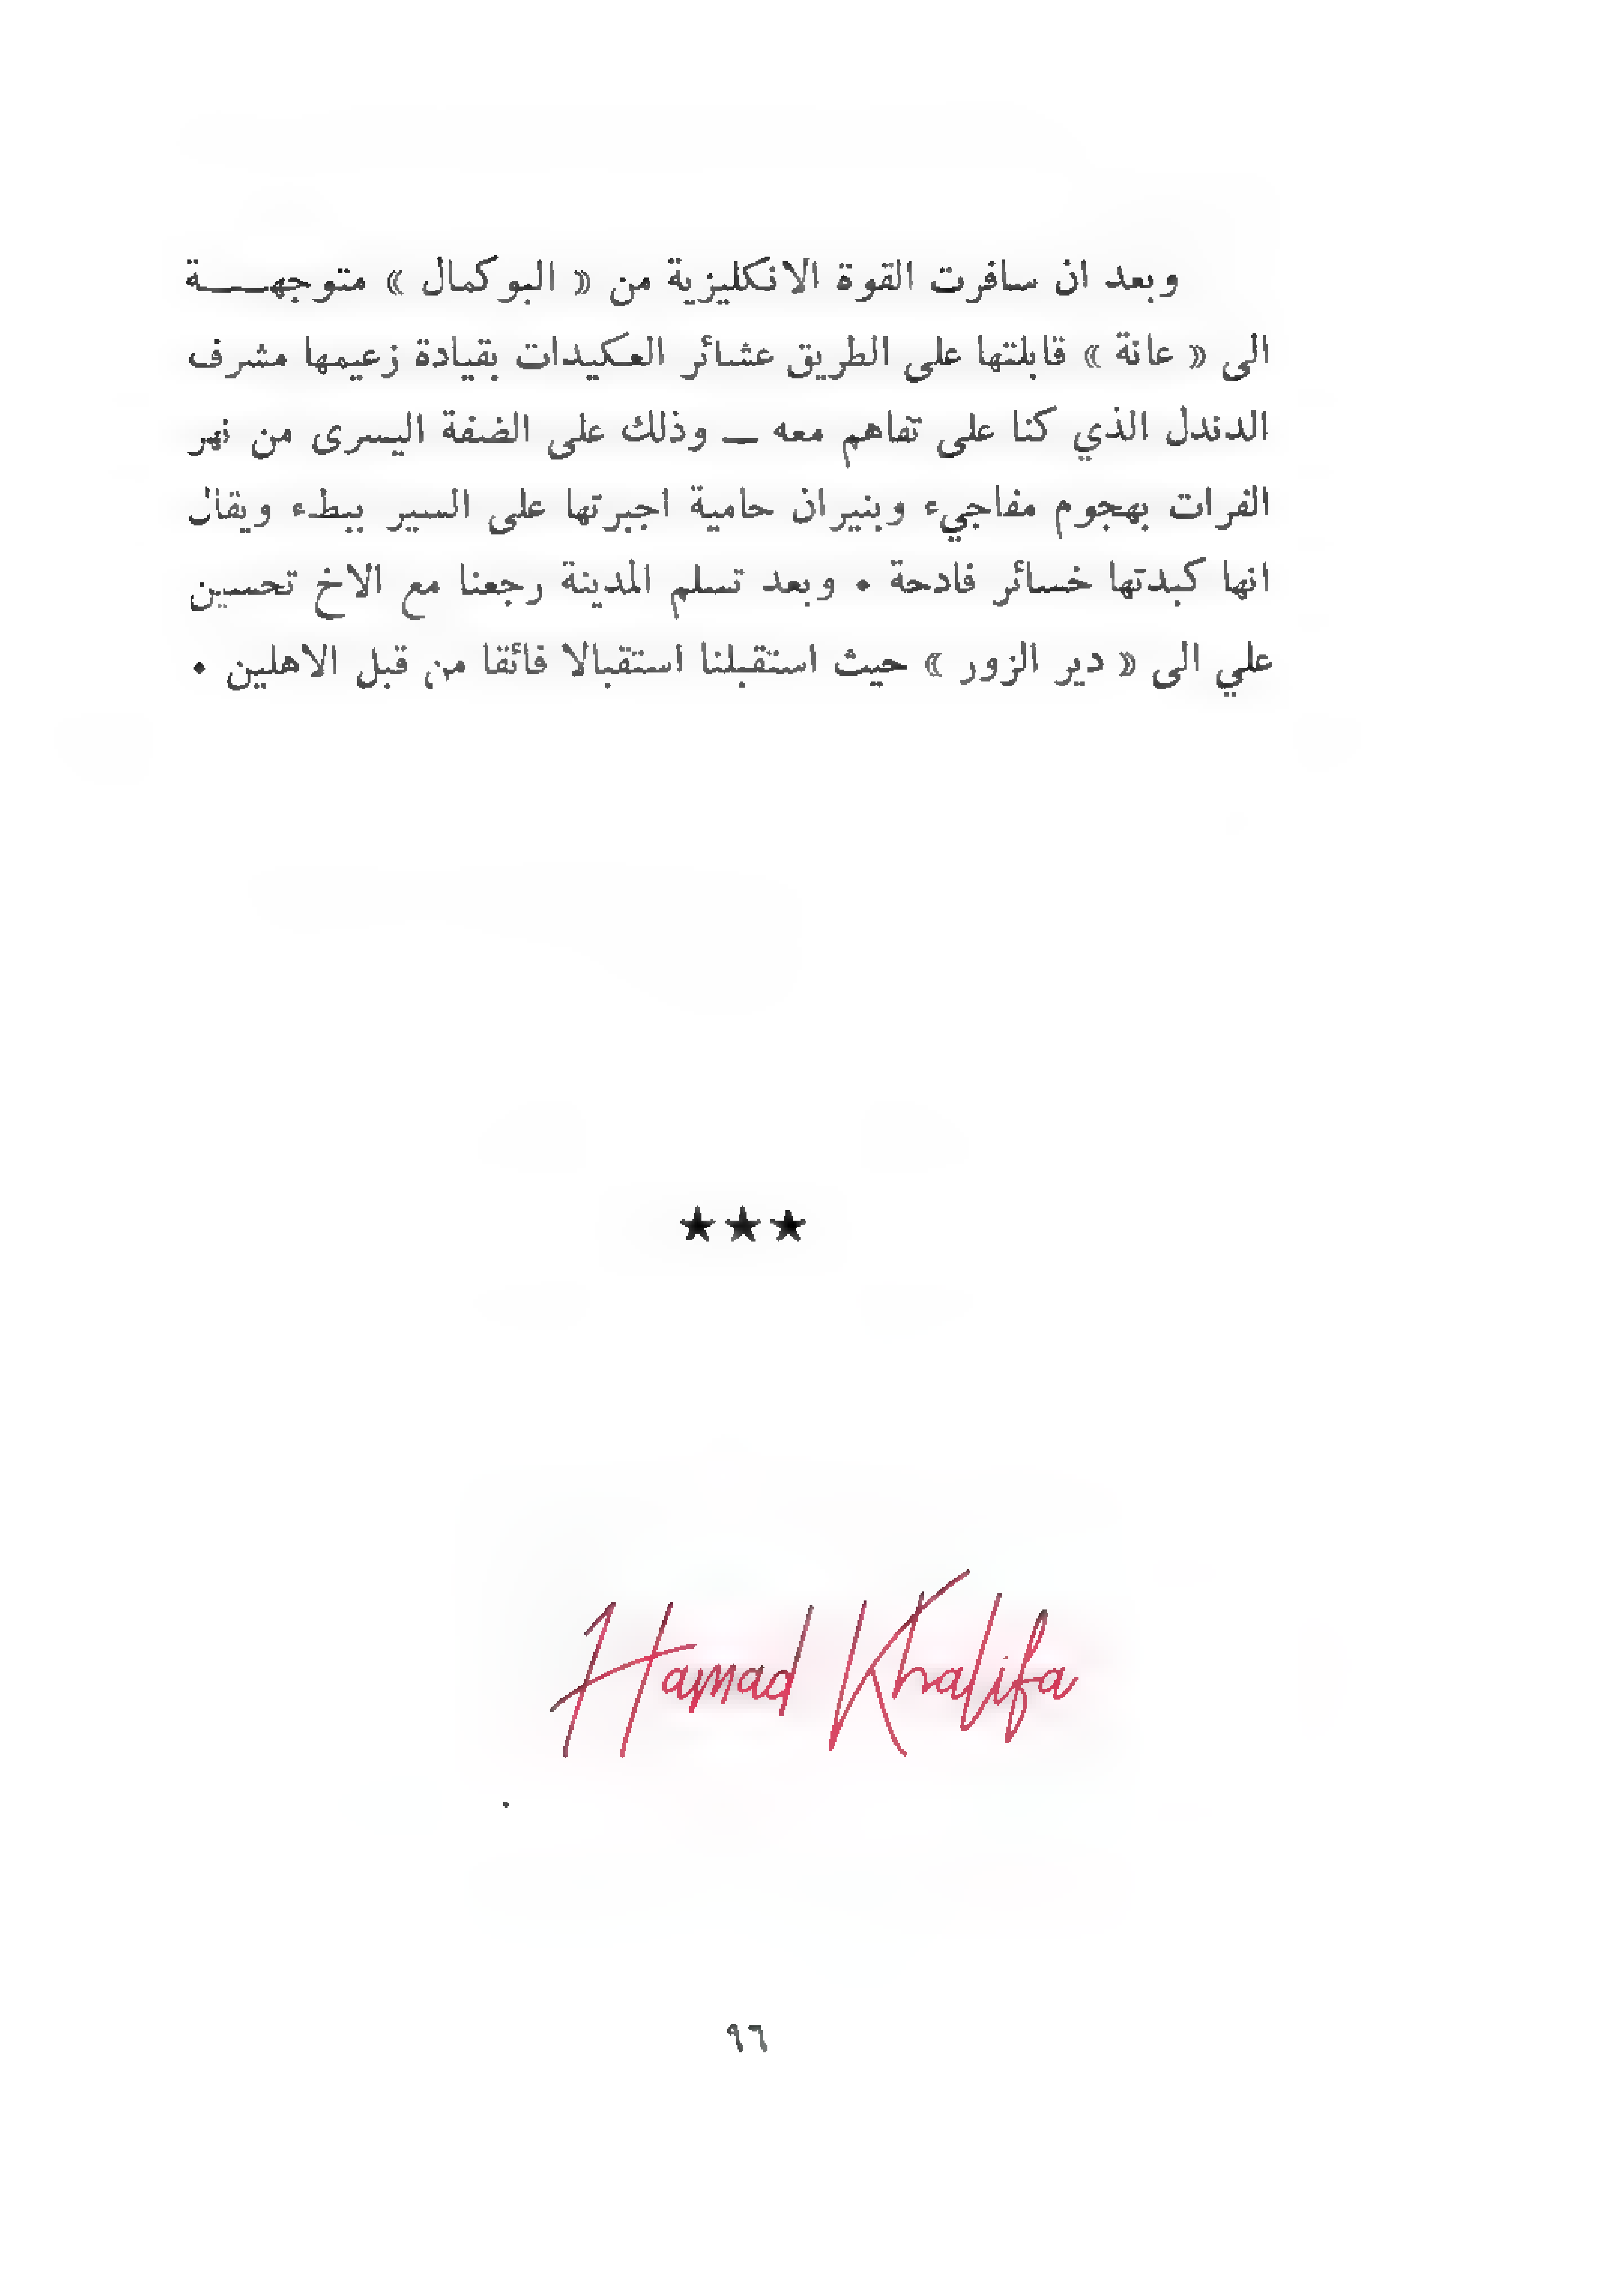 وبعد ان سافرت القوة الانكليزية من « البوكمال » متوجهـــة
الى « عانة » قابلتها على الطريق عشائر العكيدات بقيادة زعيمها مشرف
الدندل الذي كنا على تفاهم معه ــ وذلك على الضفة اليسرى من نهر
الفرات بهجوم مفاجيء وبنيران حامية اجبرتها على السير ببطء ويقال
انها كبدتها خسائر فادحة • وبعد تسلم المدينة رجعنا مع الاخ تحسين
علي الى « دير الزور » حيث استقبلنا استقبالا فائقا من قبل الاهلين •
★★★
Hamad Khalifa
٩٦